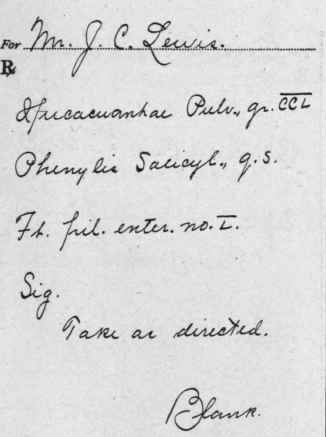 For Mr. J. C. Lewis.
℞
Ipecacuanhae Pulv., gr. CCL
Phenylis Salicyl., q.s.
Ft. pil. enter. no. L.
Sig.
Take as directed.
Blank.